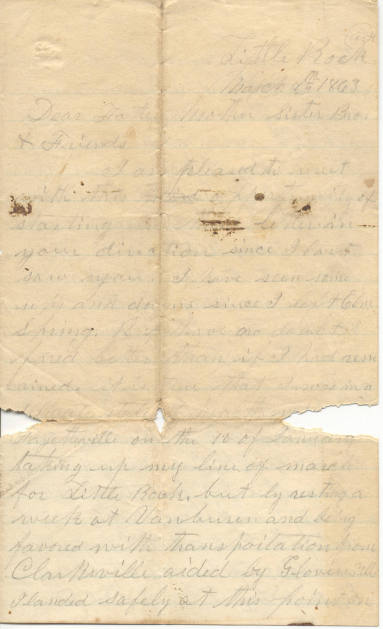 Little Rock
March 4th 1863
Dear Father Mother Sister Bros
& Friends
I am pleased to meet
with this opportunity of
starting in
your direction since I have
saw you. I have seen some
ups and downs since I left
Spring. But have no doubt
fared better than if I had rem
ained. it is true that I was in a
state of health
Fayetteville on the 10 of January
taking up my line of march
for Little Rock, but by resting a
week at Vanburen and being
favored with transpoitation from
Clarksville aided by
I landed safely at this point on